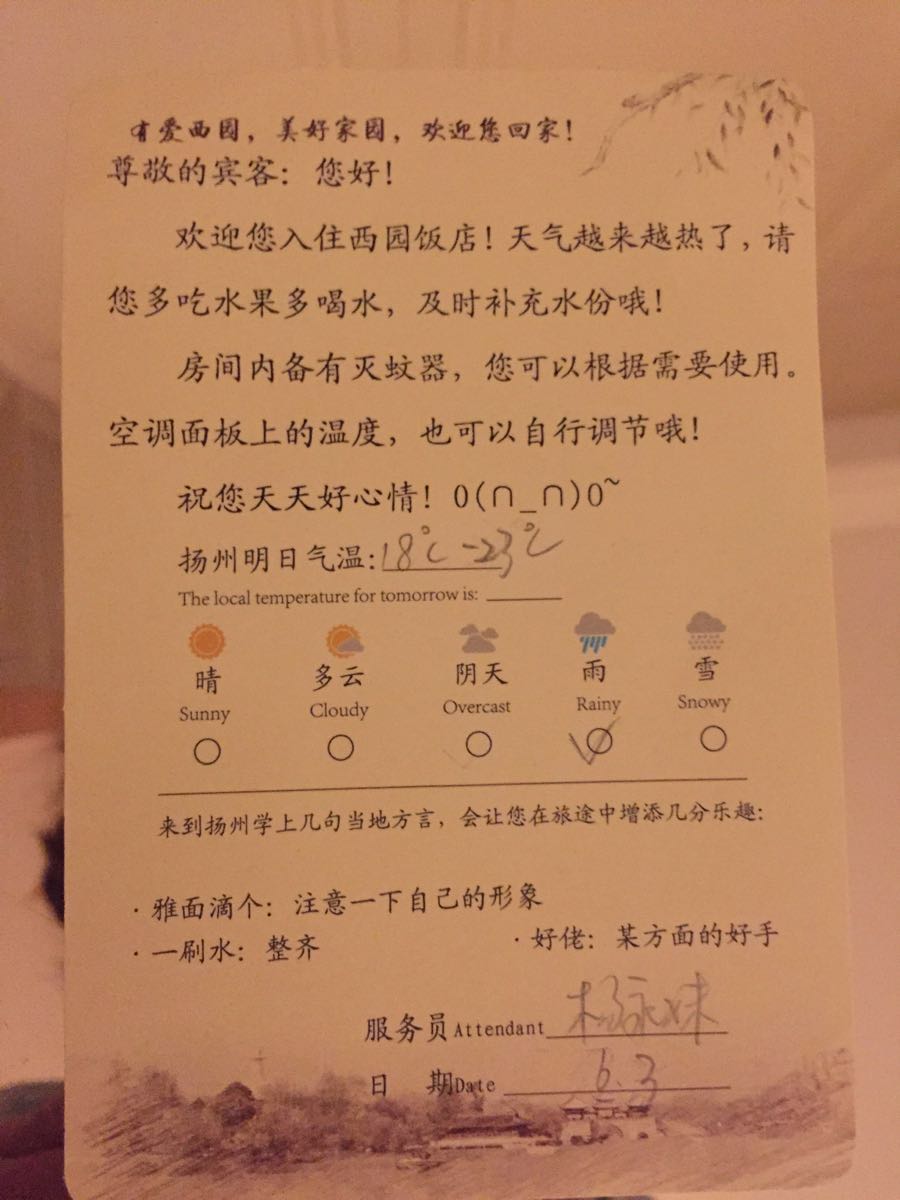 有爱西园，美好家园，欢迎您回家！
尊敬的宾客：您好！
欢迎您入住西园饭店！天气越来越热了，请
您多吃水果多喝水，及时补充水份哦！
房间内备有灭蚊器，您可以根据需要使用。
空调面板上的温度，也可以自行调节哦！
祝您天天好心情！O(∩_∩)O~
扬州明日气温：18℃-23℃
The local temperature for tomorrow is:
晴 多云 阴天 雨 雪
Sunny Cloudy Overcast Rainy Snowy
来到扬州学上几句当地方言，会让您在旅途中增添几分乐趣：
·雅面滴个：注意一下自己的形象
·一刷水：整齐 ·好佬：某方面的好手
服务员Attendant 杨永妹
日 期Date 6.3